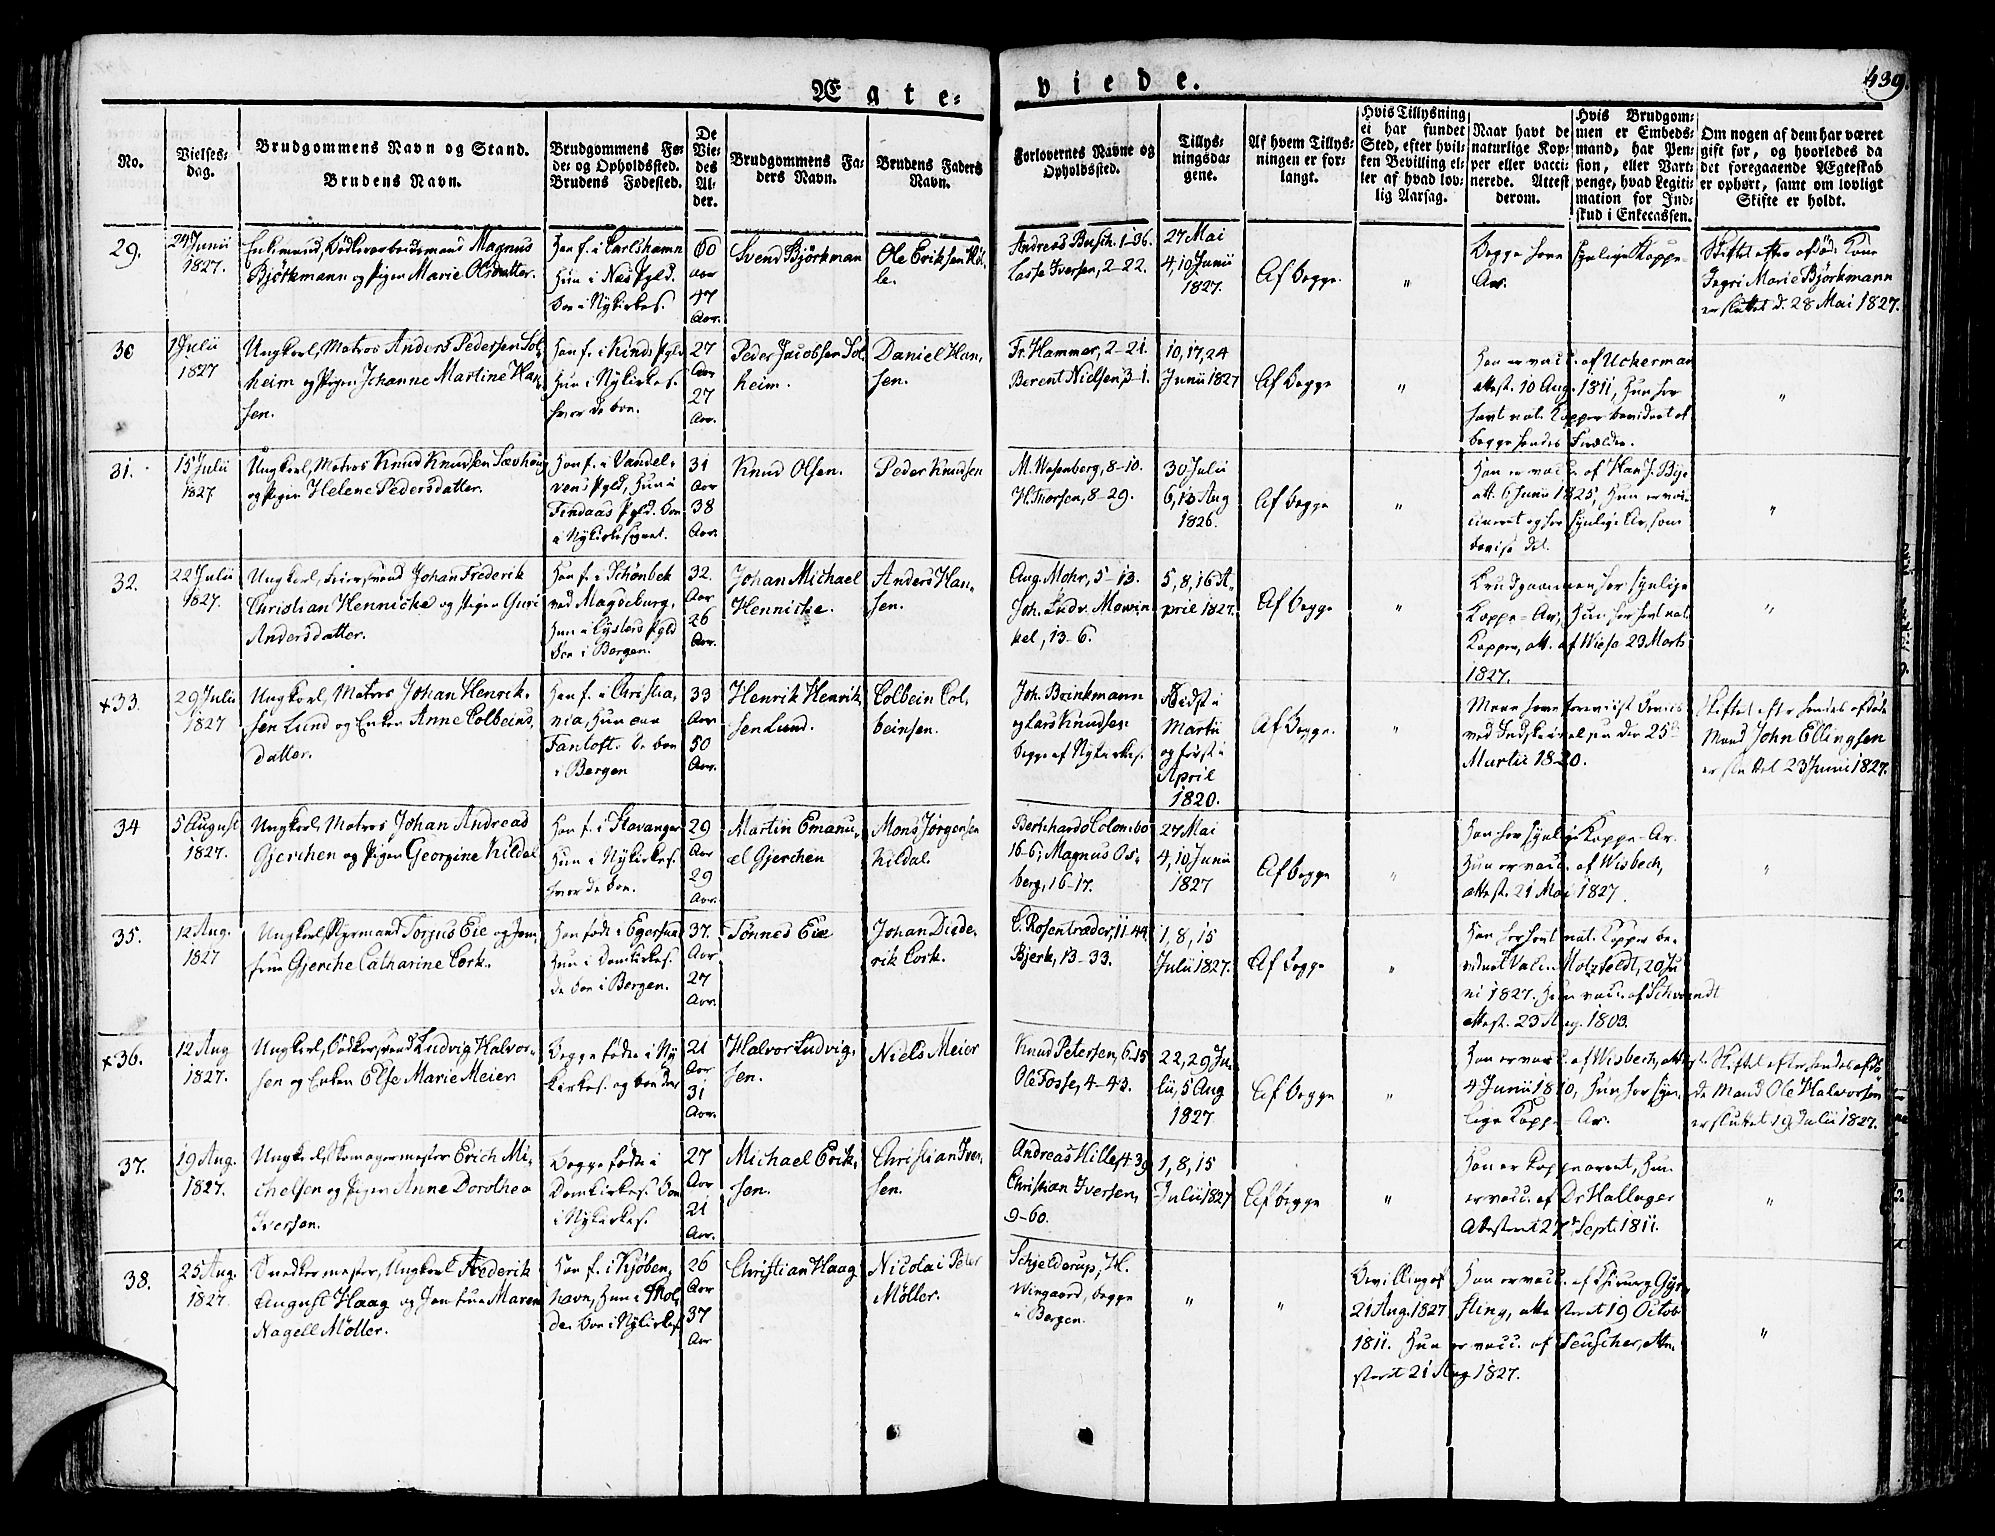 Ægte-
viede.
439.
No.
Vielses-
dag.
Brudgommens Navn og Stand.
Brudens Navn.
Brudgommens Fø-
de- og Opholdssted.
Brudens Fødested.
De
Vie-
des
Al-
der.
Brudgommens Fa-
ders Navn.
Brudens Faders
Navn.
Forlovernes Navne og
Opholdssted.
Tillys-
ningsda-
gene.
Af hvem Tillys-
ningen er for-
langt.
Hvis Tillysning
ei har fundet
Sted, efter hvil-
ken Bevilling el-
ler af hvad lov-
lig Aarsag.
Naar havt de
naturlige Kop-
per eller vacci-
nerede. Attest
derom.
Hvis Brudgom-
men er Embeds-
mand, har Pen-
sion, eller Vart-
penge, hvad Legiti-
mation for Ind-
skud i Enkecassen.
Om nogen af dem har været
gift før, og hvorledes da
det foregaaende Ægteskab
er ophørt, samt om lovligt
Skifte er holdt.
29.
24 Junii
1827.
Enkemand, Magnus
Björkmann og Pigen Marie Olsdatter.
Han f. i Carlshamn
Hun i Næs Pgld.
boe i Nykirkes.
60
Aar
47
Aar.
Svend Björkman
Ole Eriksen
Andreas Busch. 1-36.
Lasse Iversen, 2-22.
27 Mai
4, 10 Junii
1827.
Af begge.
"
Begge have synlige Koppe-
Ar.
Skiftet efter afdøde Kone
Ingri Marie Björkmann
er sluttet d. 28 Mai 1827.
30
1 Julii
1827
Ungkarl, Matros Anders Pedersen Sol-
heim og Pigen Johanne Martine Han-
sen.
Han f. i Kinds Pgld
Hun i Nykirkes.
hvor de boe.
27
Aar
27
Aar.
Peder Jacobsen Sol-
heim.
Daniel Han-
sen.
Fr. Hammer, 2-21.
Berent Nielsen, 3-1.
10, 17, 24
Junii 1827
Af begge
"
Han er vacc. af Uckerman
attest. 10 Aug. 1811, Hun har
havt nat. Kopper bevidnet af
begge hendes Forældre.
"
31.
15 Julii
1827.
Ungkarl, Matros Knud Knudsen Sævhoug
og Pigen Helene Pedersdatter.
Han f. i Vandel-
vens Pgld, Hun i
Findaas Pgld. boe
i Nykirkesognet.
31
Aar
38
Aar.
Knud Olsen.
Peder Knudsen
M. Wesenberg, 8-10.
H. Thorsen, 8-29.
30 Julii
6, 13 Aug
1826.
Af begge
"
Han er vacc. af Han J. Bije
att. 6 Junii 1825, Hun er vac-
cineret og har synlige Ar, som
bevise det.
"
32.
22 Julii
1827.
Ungkarl, Johan Frederik
Christian Hennicke og Pigen Guri
Andersdatter.
Han f. i Schönbek
ved Magdeburg,
Hun i Lysters Pgld
boe i Bergen.
32.
Aar
26
Aar.
Johan Michael
Hennicke.
Anders Han-
sen.
Aug. Mohr, 5-13.
Joh. Ludv. Mowin-
kel, 13-6.
5, 8, 16 A-
prile 1827.
Af begge
"
Brudgommen har synlige
Koppe-Ar, Hun har havt nat.
Kopper, att. af Wiese 23 Marts
1827.
"
x33.
29 Julii
1827
Ungkarl, Matros Johan Henrik-
sen Lund og Enken Anne Colbeins-
datter.
Han f. i Christia-
nia, Hun paa
Fantoft. De boe
i Bergen
33
Aar
50
Aar.
Henrik Henrik-
sen Lund.
Colbein Col-
beinsen.
Joh. Brinkmann
og Lars Knudsen
begge af Nykirkes.
Sidst i
Martii
og først i
April
1820.
Af begge.
"
have foreviist Beviis
ved Indskrivelsen den 25de
Martii 1820.
Skiftet efter hendes afdøde
Mand John Ellingsen
er sluttet 23 Junii 1827.
34
5 August
1827.
Ungkarl, Matros Johan Andreas
Gjerchen og Pigen Georgine Kildal
Han f. i Stavanger
Hun i Nykirkes.
hvor de boe.
29
Aar
29
Aar.
Martin Emanu-
el Gjerchen
Mons Jörgensen
Kildal.
Bernhard Colombo
16-6; Magnus Os-
berg, 16-17.
27 Mai
4, 10 Junii
1827
Af begge
"
Han har synlige Koppe-Ar.
Hun er vacc. af Wisbech,
attest. 21 Mai 1827.
"
35.
12 Aug.
1827
Ungkarl, Styrmand Torjus Eie og Jom-
fru Gjerche Catharine Cork.
Han født i Egersund
Hun i Domkirkes.
de boe i Bergen.
37.
Aar
27
Aar.
Tönnes Eie
Johan Diede-
rik Cork.
C. Rosentræder, 11-44
Bjerk, 13-33.
1, 8, 15
Julii 1827.
Af begge
"
Han har havt nat. Kopper be-
vidnet Valen. Holzfeldt, 20 Ju-
ni 1827. Hun vacc. af Schwendt
attest. 23 Aug. 1803.
x36.
12 Aug
1827.
Ungkarl, Bödkersvend Ludvig Halvor-
sen og Enken Else Marie Meier
Begge fødte i Ny-
kirkes. og boe der
21
Aar
31
Aar.
Halvor Ludvig-
sen.
Niels Meier
Knud Petersen, 6-15
Ole Fosse, 4-43.
22, 29 Ju-
lii, 5 Aug
1827
Af begge
"
Han er vacc. af Wisbech, attest
4 Junii 1810, Hun har syn-
lige Koppe-Ar.
Skiftet efter hendes afdö-
de Mand Ole Halvorsen
er sluttet 19 Julii 1827.
37.
19 Aug.
1827.
Ungkarl, Skomagermester Erich Mi-
chelsen og Pigen Anne Dorothea
Iversen.
Begge fødte i
Domkirkes. boe
i Nykirkes.
27
Aar
21
Aar.
Michael Erik-
sen.
Christian Iver-
sen.
Andreas Hille, 4-39
Christian Iversen,
9-60.
1, 8, 15
Julii 1827
Af begge
"
Han er koppearret, Hun
er vacc. af Dr Hallager
Attesteret 27 Sept. 1811.
"
38.
25 Aug.
1827.
Snedkermester, Ungkarl Frederik
August Haag og Jomfrue Maren
Nagell Møller.
Han f. i Kjøben-
havn, Hun i Mol-
de. boe i Nykirkes.
26
Aar
37
Aar
Christian Haag
Nicolai Peter
Møller.
Schjelderup, H.
Wingaard, begge
i Bergen.
"
"
Bevilling af
21 Aug. 1827
Han er vacc. af Chirurg Gys-
sting, attesteret 19 Octob
1811. Hun er vacc. af Teuscher, atte-
steret 21 Aug 1827.
"